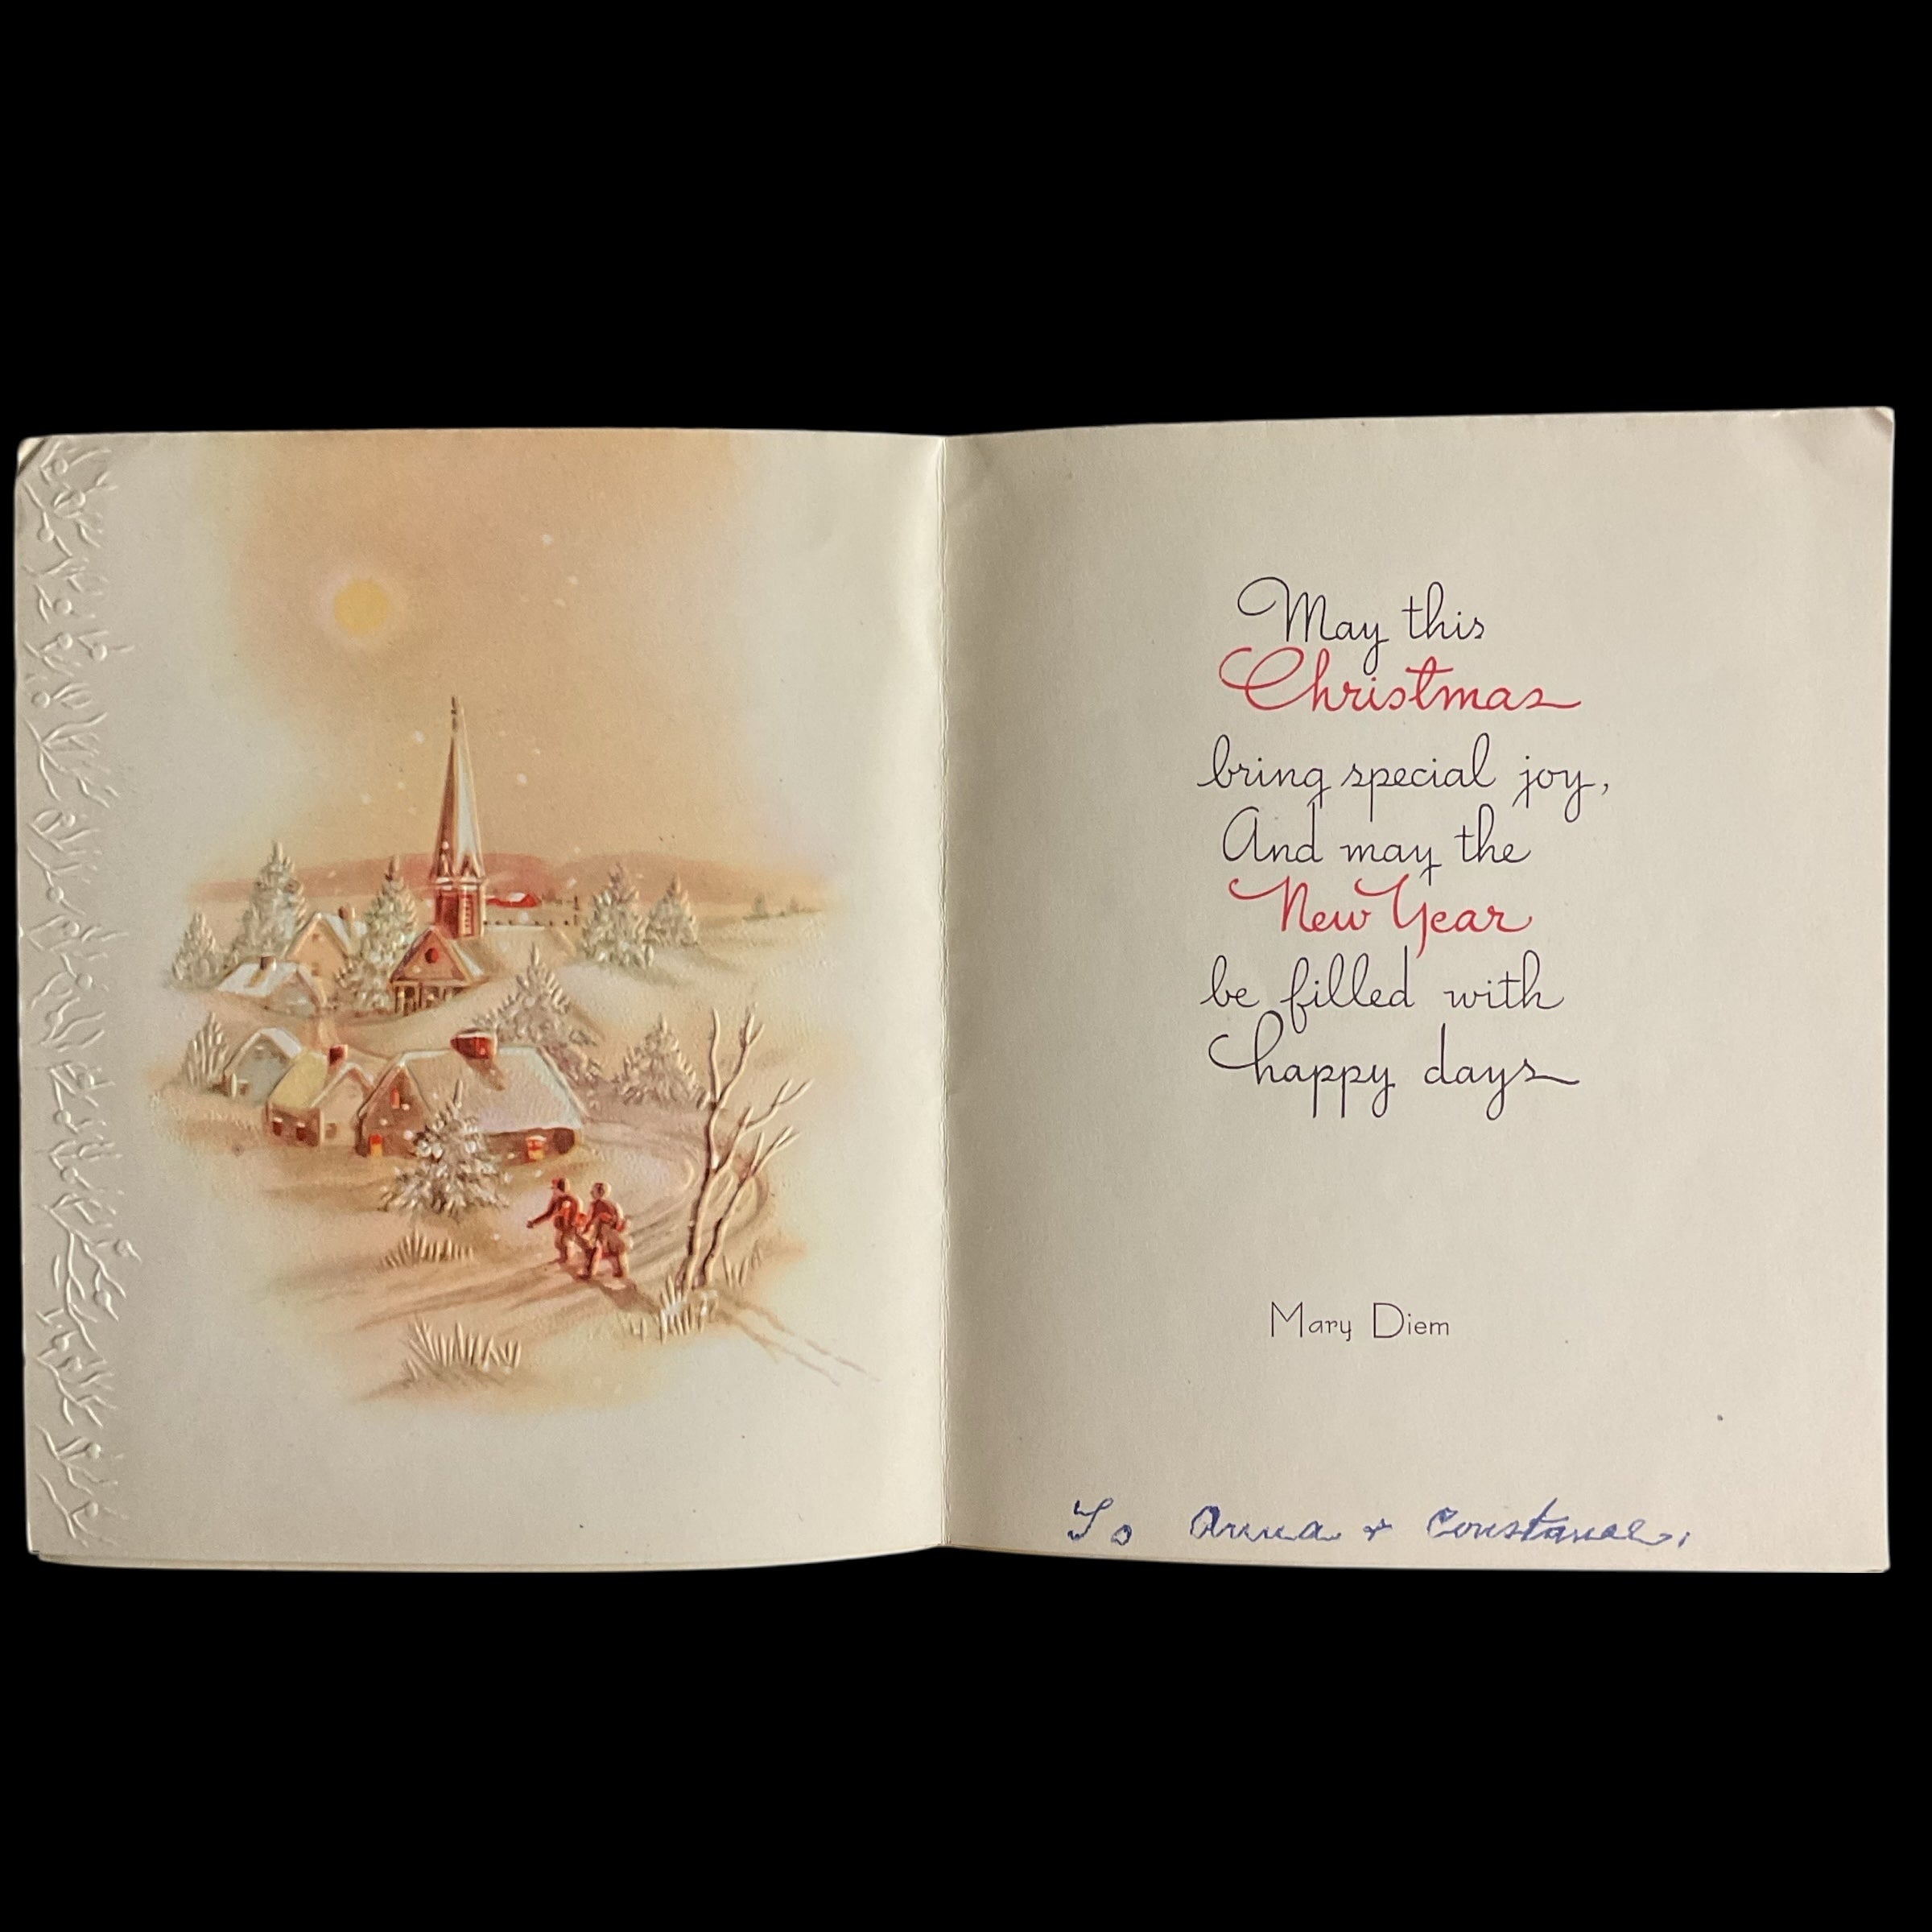 May this
Christmas
bring special joy,
And may the
New Year
be filled with
happy days
Mary Diem
To Anna + Constance.